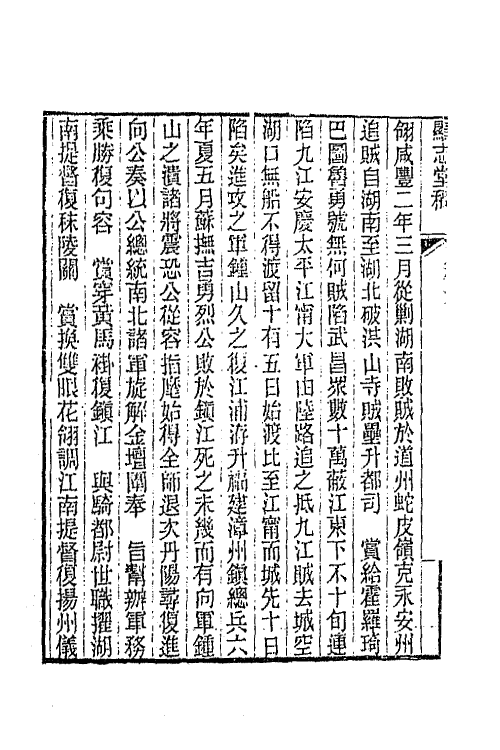 顯志堂稿
翎咸豐二年三月從剿湖南敗賊於道州蛇皮嶺克永安州
追賊自湖南至湖北破洪山寺賊壘升都司　賞給霍羅琦
巴圖魯勇號無何賊陷武昌眾數十萬蔽江東下不十旬連
陷九江安慶太平江甯大軍由陸路追之抵九江賊去城空
湖口無船不得渡留十有五日始渡比至江甯而城先十日
陷矣進攻之軍鍾山久之復江浦游升福建漳州鎮總兵六
年夏五月蘇撫吉勇烈公敗於鎮江死之未幾而有向軍鍾
山之潰諸將震恐公從容指麾始得全師退次丹陽尋復進
向公奏以公總統南北諸軍旋解金壇圍奉　旨幫辦軍務
乘勝復句容　賞穿黃馬褂復鎮江　與騎都尉世職擢湖
南提督復秣陵關　賞換雙眼花翎調江南提督復揚州儀